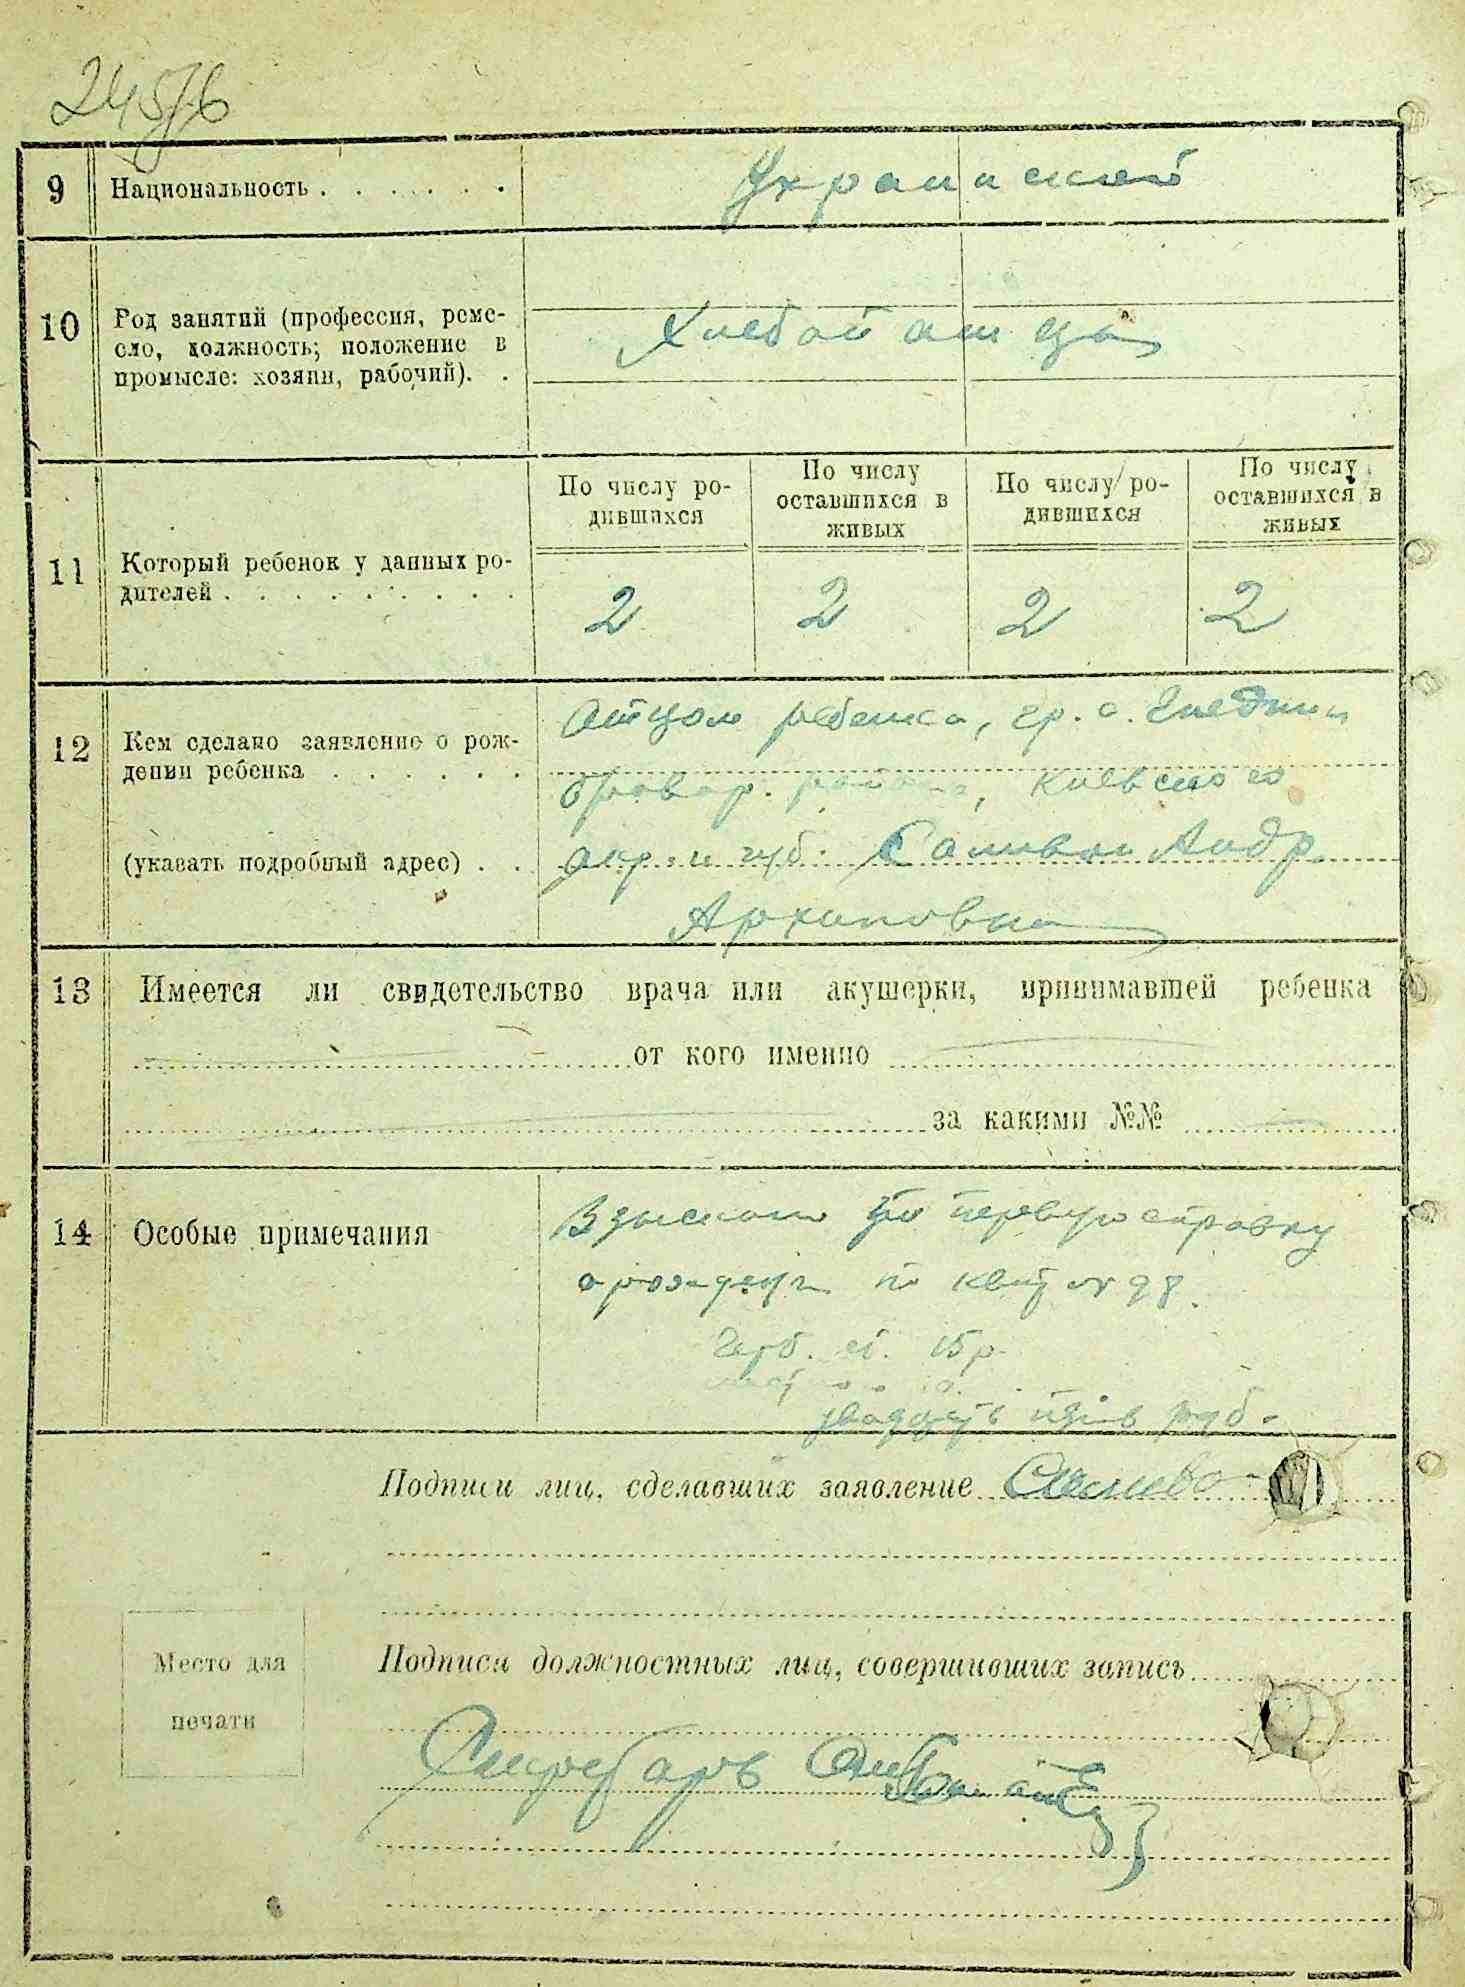 24576
9 Национальность . . . . . . .
Украинской
10 Род занятий (профессия, ремесло, должность; положение в промысле: хозяин, рабочий). .
Хлебопашцы
11 Который ребенок у данных родителей . . . . . . . . .
По числу родившихся
По числу оставшихся в живых
По числу родившихся
По числу оставшихся в живых
2 2 2 2
12 Кем сделано заявление о рождении ребенка . . . . . .
(указать подробный адрес) . .
Отцом ребенка, гр. с.
Бровар. района, Киевского
окр. и губ. Саливон Андр.
13 Имеется ли свидетельство врача или акушерки, принимавшей ребенка
от кого именно
за какими №№
14 Особые примечания
Взыскано за первую справку
о рожден по квит № 98.
Герб. сб. 15 р.
двадцать пять руб.
Подписи лиц, сделавших заявление
Подписи должностных лиц, совершивших запись
Место для
печати